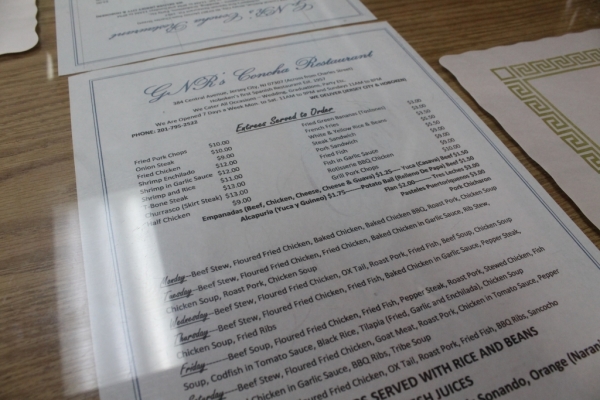 GNR's Concha Restaurant
GNR's Concha Restaurant
384 Central Avenue, Jersey City, NJ 07307 (Across from Charles Street)
Hoboken's First Spanish Restaurant Est. 1957
We Cater All Occasions - Wedding, Graduations, Party Etc.
We Are Opened 7 Days a Week Mon. to Sat. 11AM to 9PM and Sunday 11AM to 8PM
PHONE: 201-795-2533 WE DELIVER (JERSEY CITY & HOBOKEN)
Entrees Served to Order
Fried Pork Chops $10.00
Onion Steak $10.00
Fried Chicken $9.00
Shrimp Enchilado $12.00
Shrimp in Garlic Sauce $12.00
Shrimp and Rice $11.00
T-Bone Steak $13.00
Churrasco (Skirt Steak) $13.00
Half Chicken $9.00
Fried Green Bananas (Tostones)
French Fries
White & Yellow Rice & Beans
Steak Sandwich
Pork Sandwich
Fried Fish
Fish in Garlic Sauce
Rotisserie BBQ Chicken
Grill Pork Chops
Empanadas (Beef, Chicken, Cheese, Cheese & Guava) $1.25----Yuca (Casava) Beef $1.50
Alcapuria (Yuca y Guineo) $1.75--------Potato Ball (Relleno De Papa) Beef $1.50
Flan $2.00-------Tres Leches $3.00
Pasteles Puertorriqueños $3.00
Monday---Beef Stew, Floured Fried Chicken, Baked Chicken, Baked Chicken BBQ, Roast Pork, Chicken Soup
Tuesday---Beef Stew, Floured Fried Chicken, Fried Chicken, Baked Chicken in Garlic Sauce, Rib Stew,
Chicken Soup, Roast Pork, Chicken Soup
Wednesday---Beef Stew, Floured Fried Chicken, OX Tail, Roast Pork, Fried Fish, Beef Soup, Chicken Soup
Thursday---Beef Stew, Floured Fried Chicken, Fried Fish, Baked Chicken in Garlic Sauce, Pepper Steak,
Chicken Soup, Fried Ribs
Friday---Beef Stew, Floured Fried Chicken, Fried Fish, Pepper Steak, Roast Pork, Stewed Chicken, Fish
Soup, Codfish in Tomato Sauce, Black Rice, Tilapia (Fried, Garlic and Enchilado), Chicken Soup
Saturday---Beef Stew, Floured Fried Chicken, Goat Meat, Roast Pork, Chicken in Tomato Sauce, Pepper
Chicken in Garlic Sauce, BBQ Ribs, Tribe Soup
Chicken, OX Tail, Roast Pork, Fried Fish, BBQ Ribs, Sancocho
SERVED WITH RICE AND BEANS
JUICES
Sonando, Orange